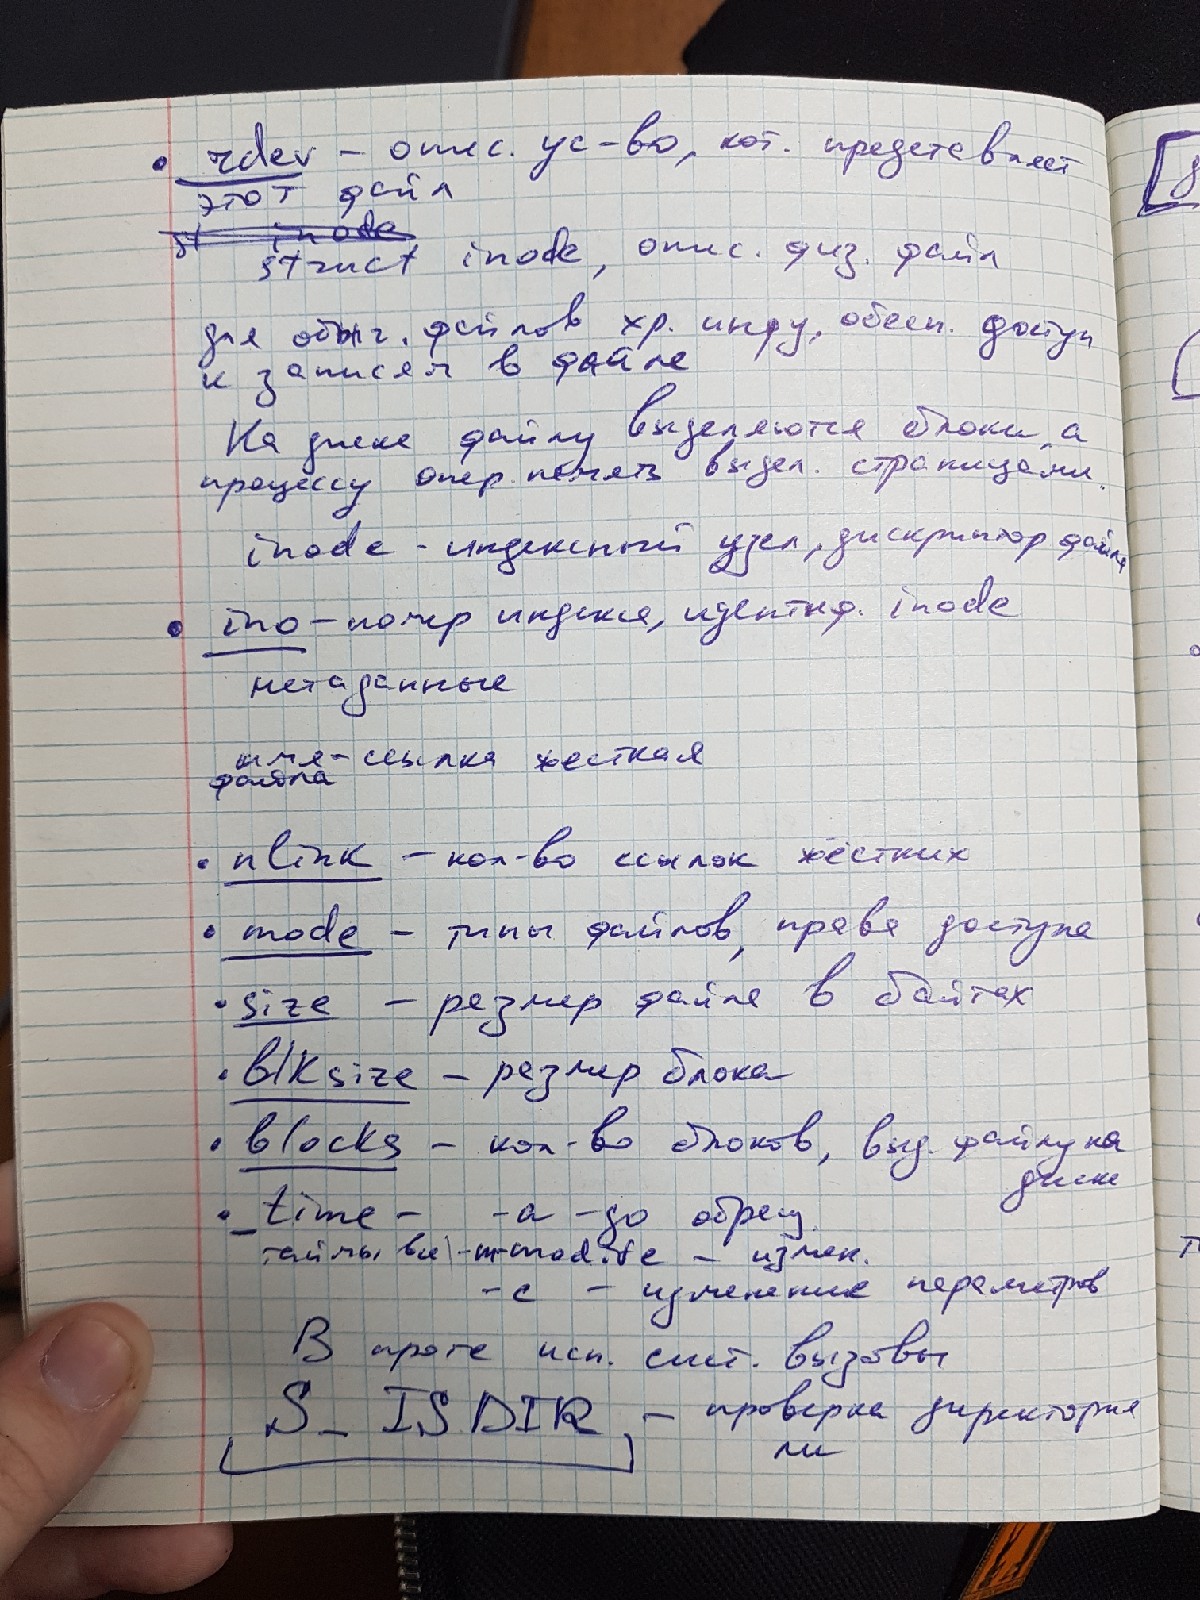 • rdev – опис. ус-во, кот. представляет
этот файл
st inode
struct inode, опис. физ. файл
для обыч. файлов хр. инфу, обесп. доступ
к записям в файле
На диске файлу выделяются блоки, а
процессу опер. память выдел. страницами.
inode - индексный узел, дискриптор файла
• ino – номер индекса, идентиф. inode
метаданные
имя – ссылка жесткая
файла
• nlink – кол-во ссылок жёстких
• mode – типы файлов, права доступа
• size – размер файла в байтах
• blksize – размер блока
• blocks – кол-во блоков, выд. файлу на
диске
• _time – -a -до обращ.
таймы все -m-modife – измен.
-c – изменение параметров
В проге исп. сист. вызовы
S_ISDIR – проверка директория
ли